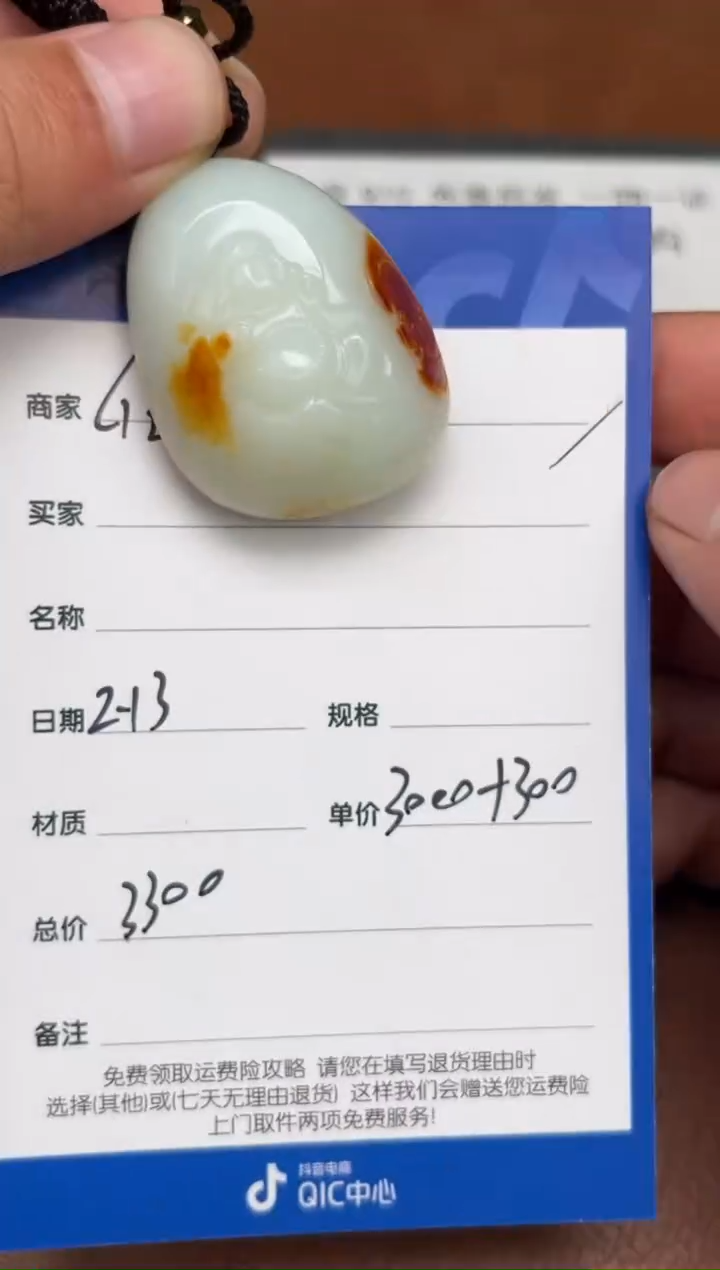 商家
买家
名称
日期 2-13 规格
材质 单价 3000+300
总价 3300
备注
免费领取运费险攻略 请您在填写退货理由时
选择(其他)或(七天无理由退货) 这样我们会赠送您运费险
上门取件两项免费服务!
抖音电商
QIC中心